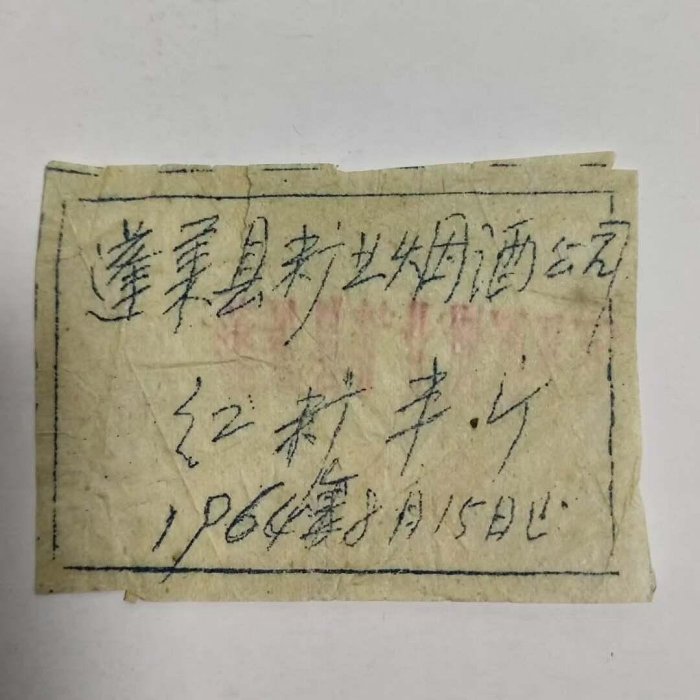 蓬莱县糖业烟酒公司
红糖半斤
1964年8月15日止